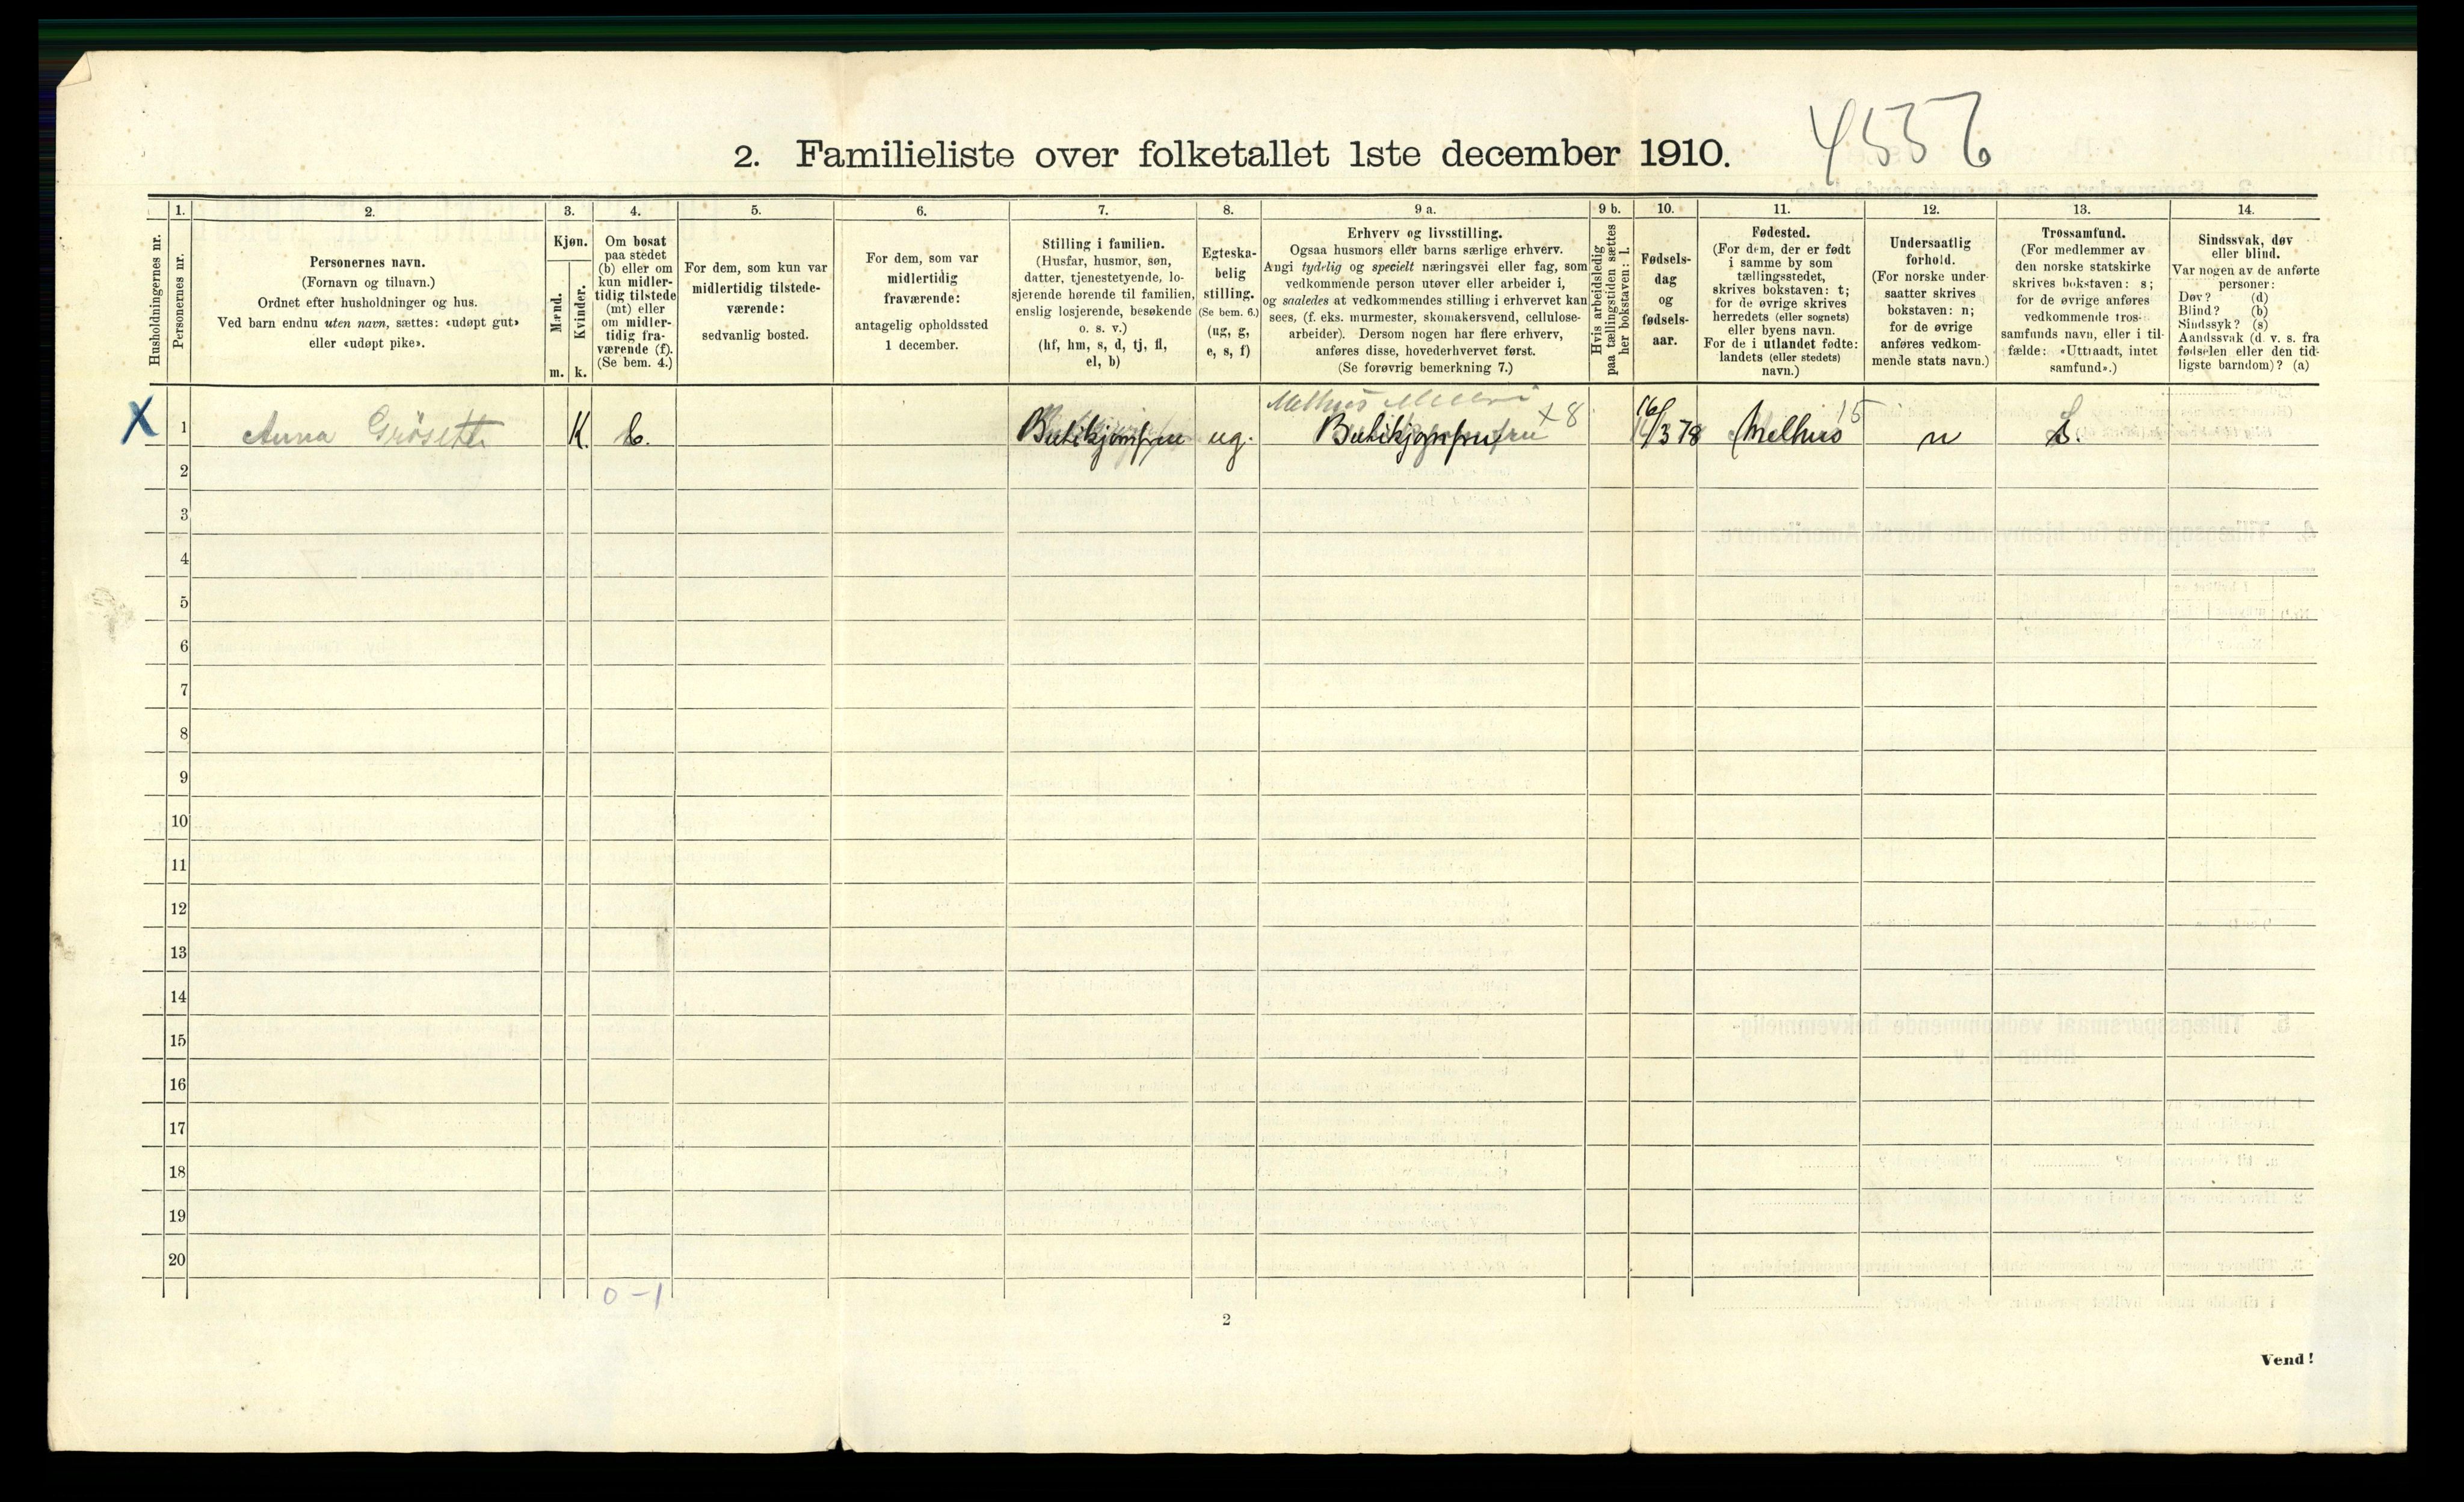 4556
2. Familieliste over folketallet 1ste december 1910.
1. 2. 3. 4. 5. 6. 7. 8. 9 a. 9 b. 10. 11. 12. 13. 14.
Husholdningernes nr.
Personernes nr.
Personernes navn.
(Fornavn og tilnavn.)
Ordnet efter husholdninger og hus.
Ved barn endnu uten navn, sættes: «udøpt gut»
eller «udøpt pike».
Kjøn.
Mænd.
Kvinder.
m. k.
Om bosat
paa stedet
(b) eller om
kun midler-
tidig tilstede
(mt) eller
om midler-
tidig fra-
værende (f).
(Se bem. 4.)
For dem, som kun var
midlertidig tilstede-
værende:
sedvanlig bosted.
For dem, som var
midlertidig
fraværende:
antagelig opholdssted
1 december.
Stilling i familien.
(Husfar, husmor, søn,
datter, tjenestetyende, lo-
sjerende hørende til familien,
enslig losjerende, besøkende
o. s. v.)
(hf, hm, s, d, tj, fl,
el, b)
Egteska-
belig
stilling.
(Se bem. 6.)
(ug, g,
e, s, f)
Erhverv og livsstilling.
Ogsaa husmors eller barns særlige erhverv.
Angi tydelig og specielt næringsvei eller fag, som
vedkommende person utøver eller arbeider i,
og saaledes at vedkommendes stilling i erhvervet kan
sees, (f. eks. murmester, skomakersvend, cellulose-
arbeider). Dersom nogen har flere erhverv,
anføres disse, hovederhvervet først.
(Se forøvrig bemerkning 7.)
Hvis arbeidsledig
paa tællingstiden sættes
her bokstaven: l.
Fødsels-
dag
og
fødsels-
aar.
Fødested.
(For dem, der er født
i samme by som
tællingsstedet,
skrives bokstaven: t;
for de øvrige skrives
herredets (eller sognets)
eller byens navn.
For de i utlandet fødte:
landets (eller stedets)
navn.)
Undersaatlig
forhold.
(For norske under-
saatter skrives
bokstaven: n;
for de øvrige
anføres vedkom-
mende stats navn.)
Trossamfund.
(For medlemmer av
den norske statskirke
skrives bokstaven: s;
for de øvrige anføres
vedkommende tros-
samfunds navn, eller i til-
fælde: «Uttraadt, intet
samfund».)
Sindssvak, døv
eller blind.
Var nogen av de anførte
personer:
Døv? (d)
Blind? (b)
Sindssyk? (s)
Aandssvak (d. v. s. fra
fødselen eller den tid-
ligste barndom)? (a)
X 1 Anna Grösette K. b. Butikjomfru ug. Butikjomfru x8 16/3 78 Melhus 15 n S.
2
3
4
5
6
7
8
9
10
11
12
13
14
15
16
17
18
19
20
0-1
2
Vend!